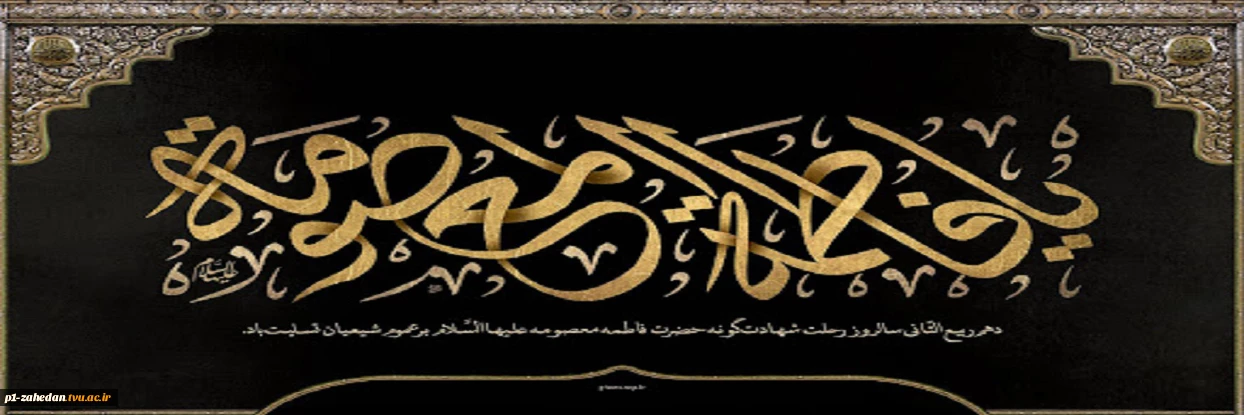 یا فاطمة المعصومة
علیهاالسلام
دهم ربیع الثّانی سالروز رحلت شهادت‌گونه حضرت فاطمه معصومه علیها السَّلام بر عموم شیعیان تسلیت باد.
p1-zahedan.tvu.ac.ir